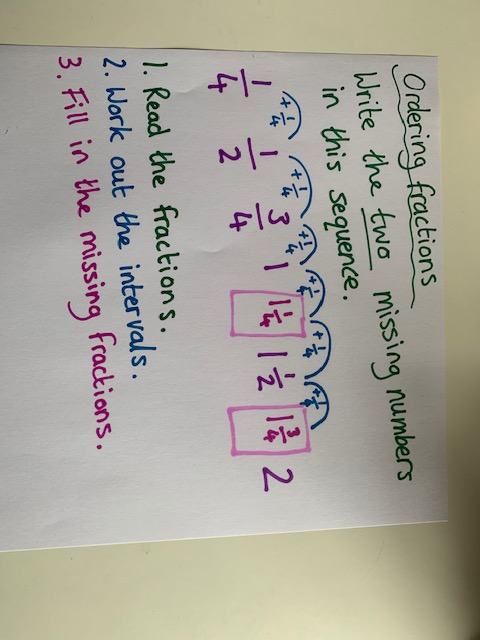 Ordering fractions
Write the two missing numbers
in this sequence.
+1/4 +1/4 +1/4 +1/4 +1/4 +1/4
1/4 1/2 3/4 1 1 1/4 1 1/2 1 3/4 2
1. Read the fractions.
2. Work out the intervals.
3. Fill in the missing fractions.